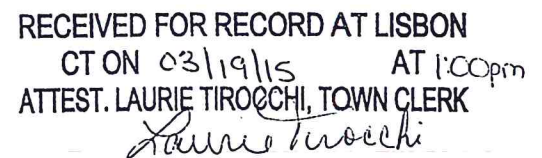 RECEIVED FOR RECORD AT LISBON
CT ON 03/19/15 AT 1:00pm
ATTEST. LAURIE TIROCCHI, TOWN CLERK
Laurie Tirocchi